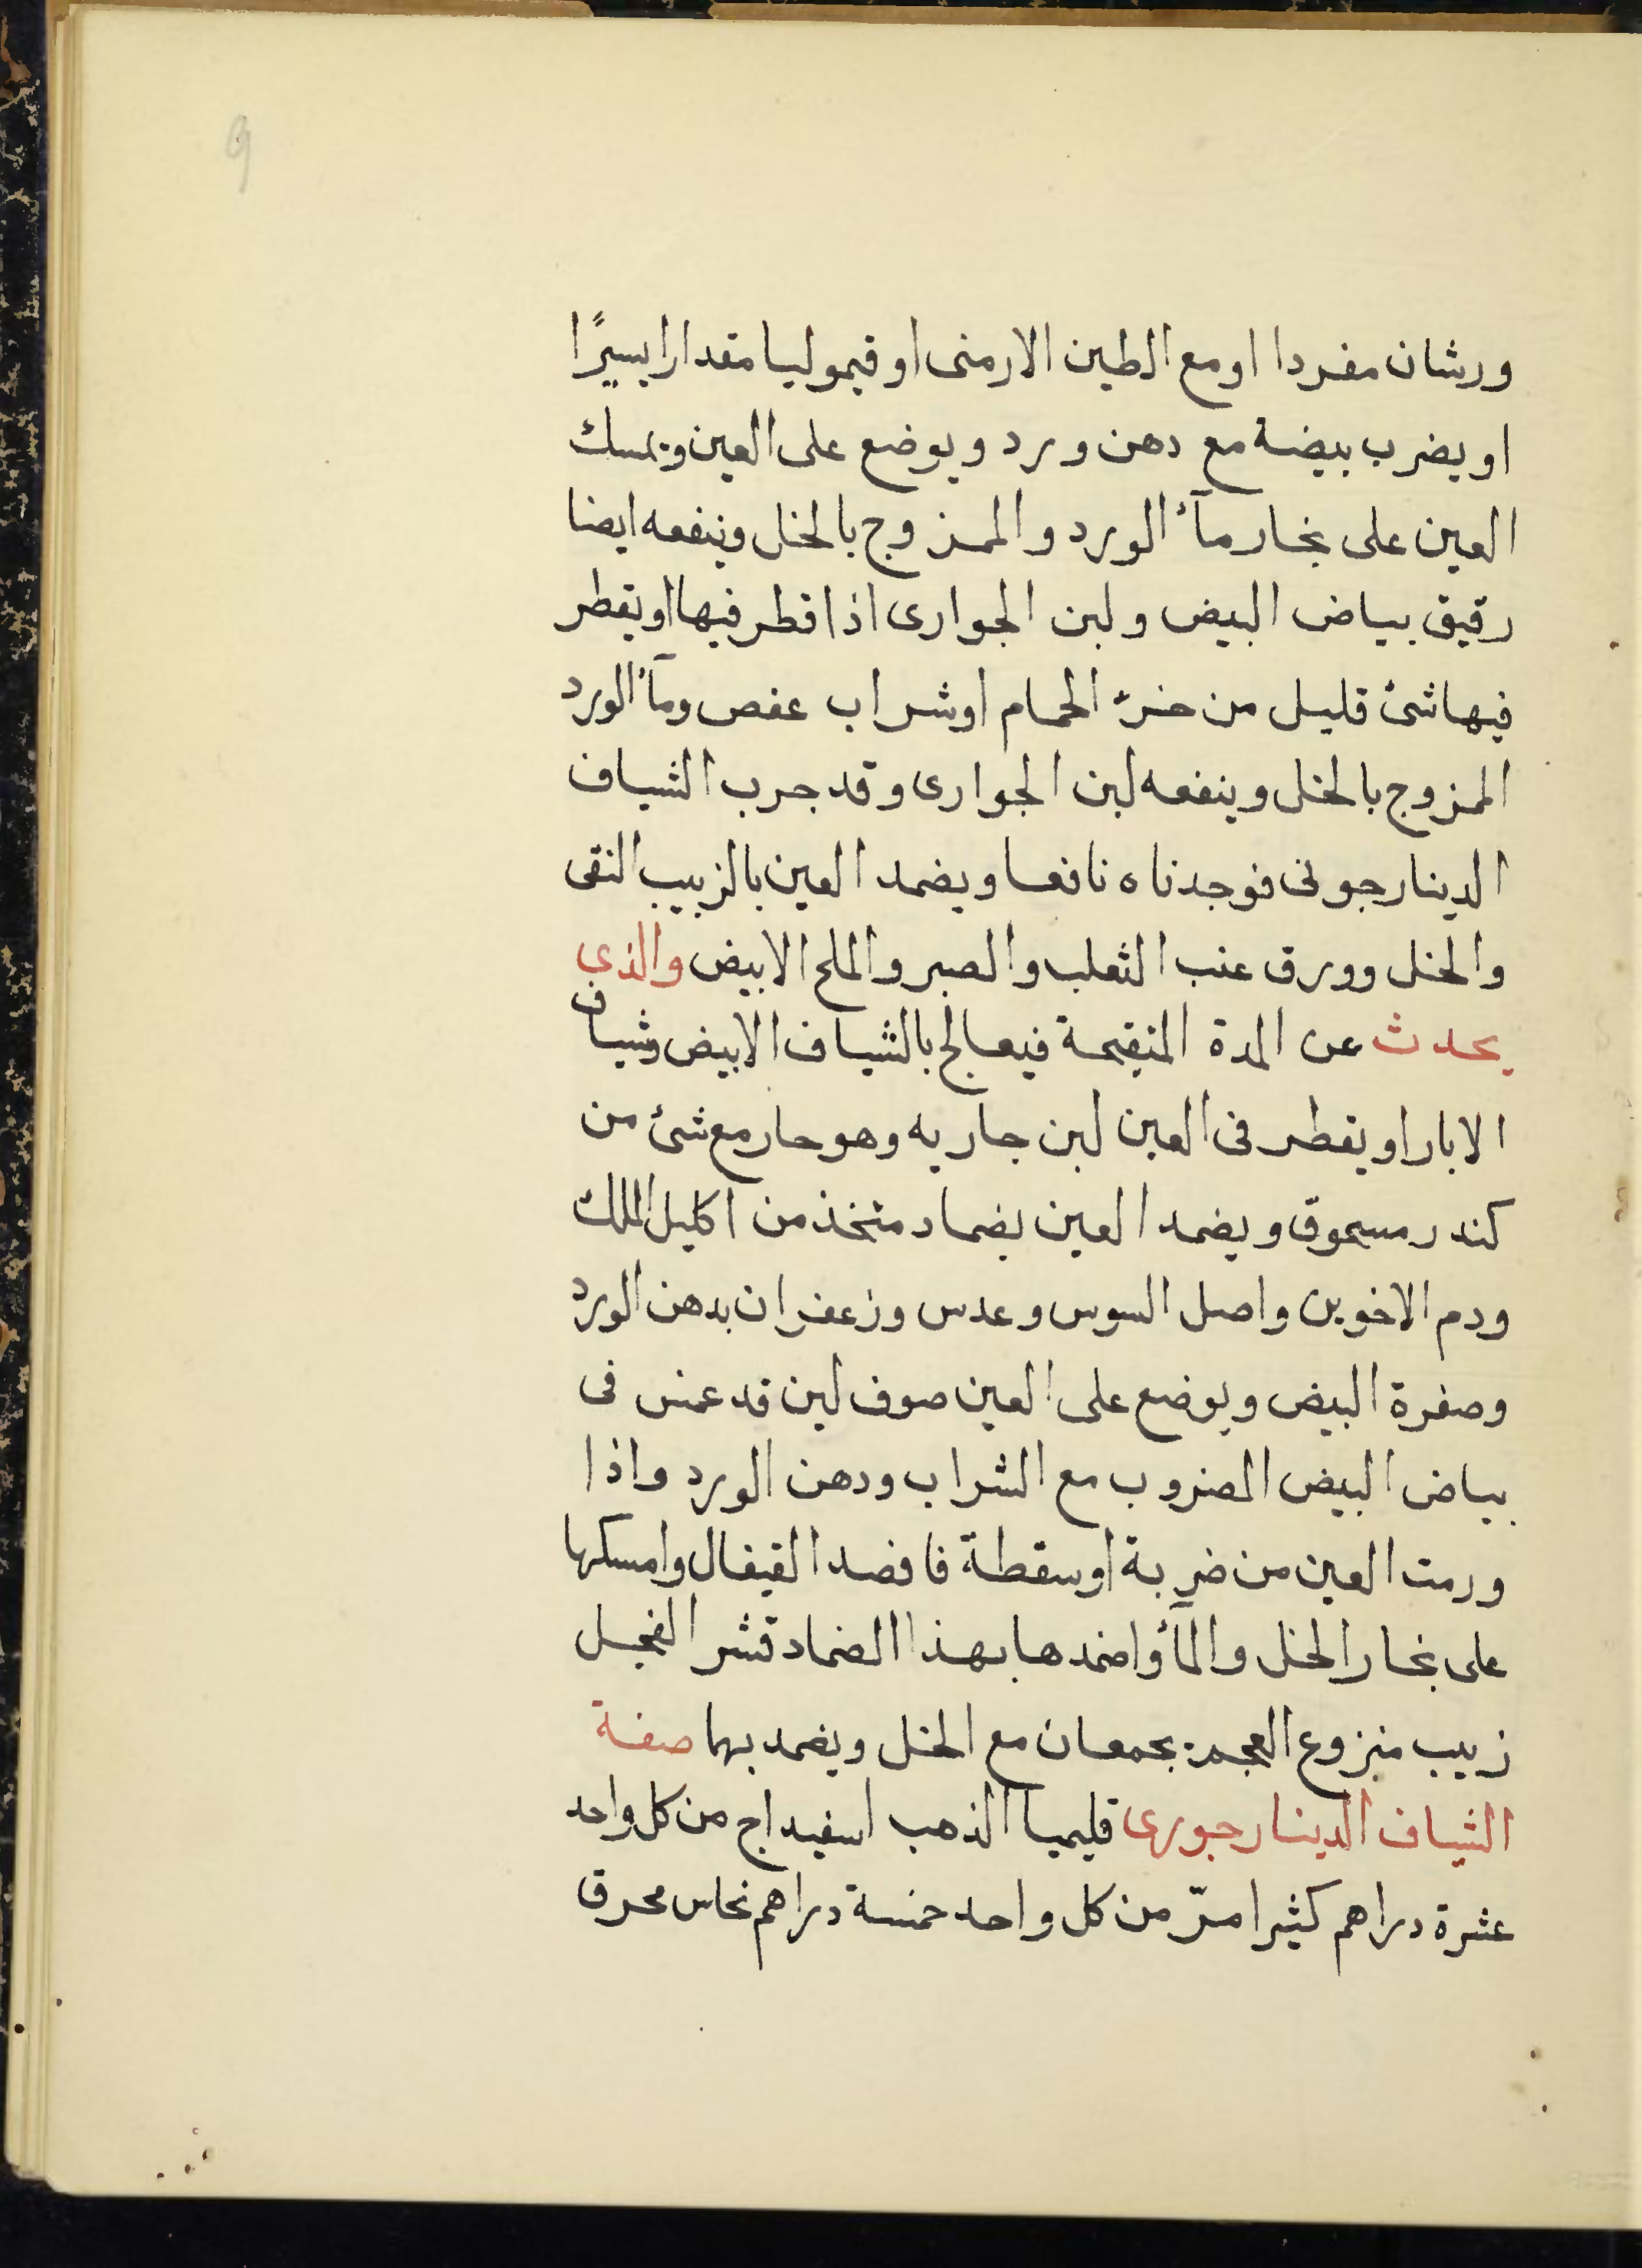 9
ورشان مفردا او مع الطين الارمنى او قيموليا مقدارا يسيرًا
او يضرب بيضة مع دهن ورد ويوضع على العين ويمسك
العين على بخار مآء الورد والممزوج بالخل وينفعه ايضا
رقيق بياض البيض ولبن الجوارى اذا قطر فيها او يقطر
فيها شئ قليل من خرء الحمام او شراب عفص ومآء الورد
الممزوج بالخل وينفعه لبن الجوارى وقد جرب الشياف
الدينارجونى فوجدناه نافعا ويضمد العين بالزبيب النقى
والخل وورق عنب الثعلب والصبر والملح الابيض والذي
يحدث عن المدة المتقيحة فيعالج بالشياف الابيض وشياف
الابار او يقطر فى العين لبن جاريه وهو حار مع شئ من
كندر مسحوق ويضمد العين بضماد متخذ من اكليل الملك
ودم الاخوين واصل السوس وعدس وزعفران بدهن الورد
وصفرة البيض ويوضع على العين صوف لين قد غمس فى
بياض البيض المضروب مع الشراب ودهن الورد واذا
ورمت العين من ضربة او سقطة فافصد القيفال وامسكها
على بخار الخل والمآء واضمدها بهذا الضماد قشر الفجل
زبيب منزوع العجم يجمعان مع الخل ويضمد بهما صفة
الشياف الدينارجورى قليميا الذهب اسفيداج من كل واحد
عشرة دراهم كثيرا مرّ من كل واحد خمسة دراهم نحاس محرق